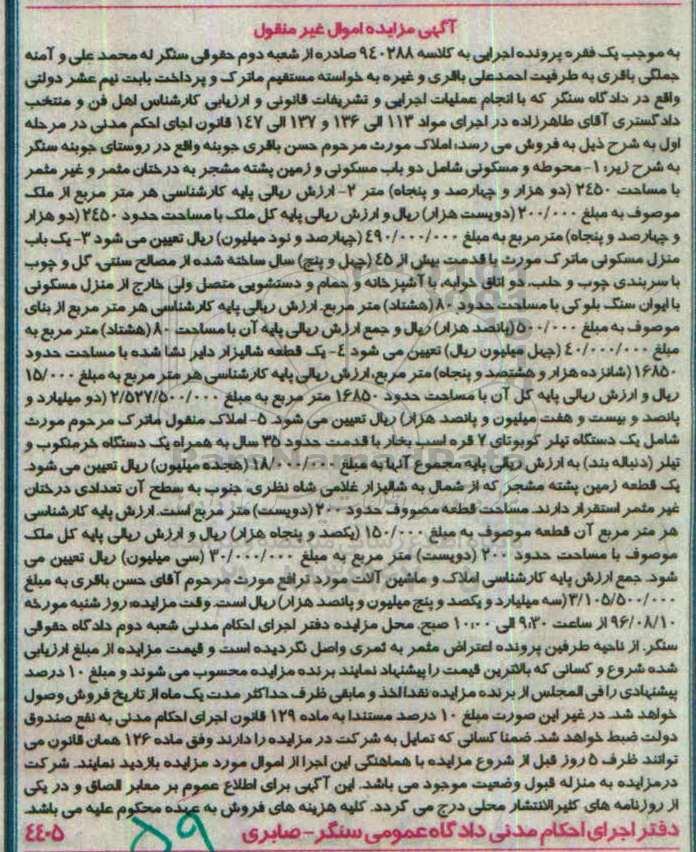 آگهی مزایده اموال غیر منقول
به موجب یک فقره پرونده اجرایی به کلاسه ۹٤۰۲۸۸ صادره از شعبه دوم حقوقی سنگر له محمد علی و آمنه
جملگی باقری به طرفیت احمدعلی باقری و غیره به خواسته مستقیم ماترک و پرداخت بابت نیم عشر دولتی
واقع در دادگاه سنگر که با انجام عملیات اجرایی و تشریفات قانونی و ارزیابی کارشناس اهل فن و منتخب
دادگستری آقای طاهرزاده در اجرای مواد ۱۱۳ الی ۱۳۶ و ۱۳۷ الی ۱٤۷ قانون اجای احکم مدنی در مرحله
اول به شرح ذیل به فروش می رسد: املاک مورث مرحوم حسن باقری جوبنه واقع در روستای جوبنه سنگر
به شرح زیر: ۱- محوطه و مسکونی شامل دو باب مسکونی و زمین پشته مشجر به درختان مثمر و غیر مثمر
با مساحت ۲٤۵۰ (دو هزار و چهارصد و پنجاه) متر ۲- ارزش ریالی پایه کارشناسی هر متر مربع از ملک
موصوف به مبلغ ۲۰۰/۰۰۰ (دویست هزار) ریال و ارزش ریالی پایه کل ملک با مساحت حدود ۲٤۵۰ (دو هزار
و چهارصد و پنجاه) متر مربع به مبلغ ٤۹۰/۰۰۰/۰۰۰ (چهارصد و نود میلیون) ریال تعیین می شود ۳- یک باب
منزل مسکونی ماترک مورث با قدمت بیش از ٤۵ (چهل و پنج) سال ساخته شده از مصالح سنتی، گل و چوب
با سربندی چوب و حلب، دو اتاق خوابه، با آشپزخانه و حمام و دستشویی متصل ولی خارج از منزل مسکونی
با ایوان سنگ بلوکی با مساحت حدود ۸۰ (هشتاد) متر مربع. ارزش ریالی پایه کارشناسی هر متر مربع از بنای
موصوف به مبلغ ۵۰۰/۰۰۰ (پانصد هزار) ریال و جمع ارزش ریالی پایه آن با مساحت ۸۰ (هشتاد) متر مربع به
مبلغ ٤۰/۰۰۰/۰۰۰ (چهل میلیون ریال) تعیین می شود ٤- یک قطعه شالیزار دایر نشا شده با مساحت حدود
۱۶۸۵۰ (شانزده هزار و هشتصد و پنجاه) متر مربع، ارزش ریالی پایه کارشناسی هر متر مربع به مبلغ ۱۵/۰۰۰
ریال و ارزش ریالی پایه کل آن با مساحت حدود ۱۶۸۵۰ متر مربع به مبلغ ۲/۵۲۷/۵۰۰/۰۰۰ (دو میلیارد و
پانصد و بیست و هفت میلیون و پانصد هزار) ریال تعیین می شود. ۵- املاک منقول ماترک مرحوم مورث
شامل یک دستگاه تیلر کوبوتای ۷ قره اسب بخار با قدمت حدود ۳۵ سال به همراه یک دستگاه خرمنکوب و
تیلر (دنباله بند) به ارزش ریالی پایه مجموع آنها به مبلغ ۱۸/۰۰۰/۰۰۰ (هجده میلیون) ریال تعیین می شود.
یک قطعه زمین پشته مشجر که از شمال به شالیزار غلامی شاه نظری، جنوب به سطح آن تعدادی درختان
غیر مثمر استقرار دارند. مساحت قطعه مصووف حدود ۲۰۰ (دویست) متر مربع است. ارزش پایه کارشناسی
هر متر مربع آن قطعه موصوف به مبلغ ۱۵۰/۰۰۰ (یکصد و پنجاه هزار) ریال و ارزش ریالی پایه کل ملک
موصوف با مساحت حدود ۲۰۰ (دویست) متر مربع به مبلغ ۳۰/۰۰۰/۰۰۰ (سی میلیون) ریال تعیین می
شود. جمع ارزش پایه کارشناسی املاک و ماشین آلات مورد ترافع مورث مرحوم آقای حسن باقری به مبلغ
۳/۱۰۵/۵۰۰/۰۰۰ (سه میلیارد و یکصد و پنج میلیون و پانصد هزار) ریال است. وقت مزایده: روز شنبه مورخه
۹۶/۰۸/۱۰ از ساعت ۹:۳۰ الی ۱۰:۰۰ صبح. محل مزایده دفتر اجرای احکام مدنی شعبه دوم دادگاه حقوقی
سنگر. از ناحیه طرفین پرونده اعتراض مثمر به ثمری واصل نگردیده است و قیمت مزایده از مبلغ ارزیابی
شده شروع و کسانی که بالاترین قیمت را پیشنهاد نمایند برنده مزایده محسوب می شوند و مبلغ ۱۰ درصد
پیشنهادی را فی المجلس از برنده مزایده نقدا اخذ و مابقی ظرف حداکثر مدت یک ماه از تاریخ فروش وصول
خواهد شد. در غیر این صورت مبلغ ۱۰ درصد مستندا به ماده ۱۲۹ قانون اجرای احکام مدنی به نفع صندوق
دولت ضبط خواهد شد. ضمنا کسانی که تمایل به شرکت در مزایده را دارند وفق ماده ۱۲۶ همان قانون می
توانند ظرف ۵ روز قبل از شروع مزایده با هماهنگی این اجرا از اموال مورد مزایده بازدید نمایند. شرکت
درمزایده به منزله قبول وضعیت موجود می باشد. این آگهی برای اطلاع عموم بر معابر الصاق و در یکی
از روزنامه های کثیرالانتشار محلی درج می گردد. کلیه هزینه های فروش به عهده محکوم علیه می باشد.
دفتر اجرای احکام مدنی دادگاه عمومی سنگر - صابری
٤٤۰۵
۵۹